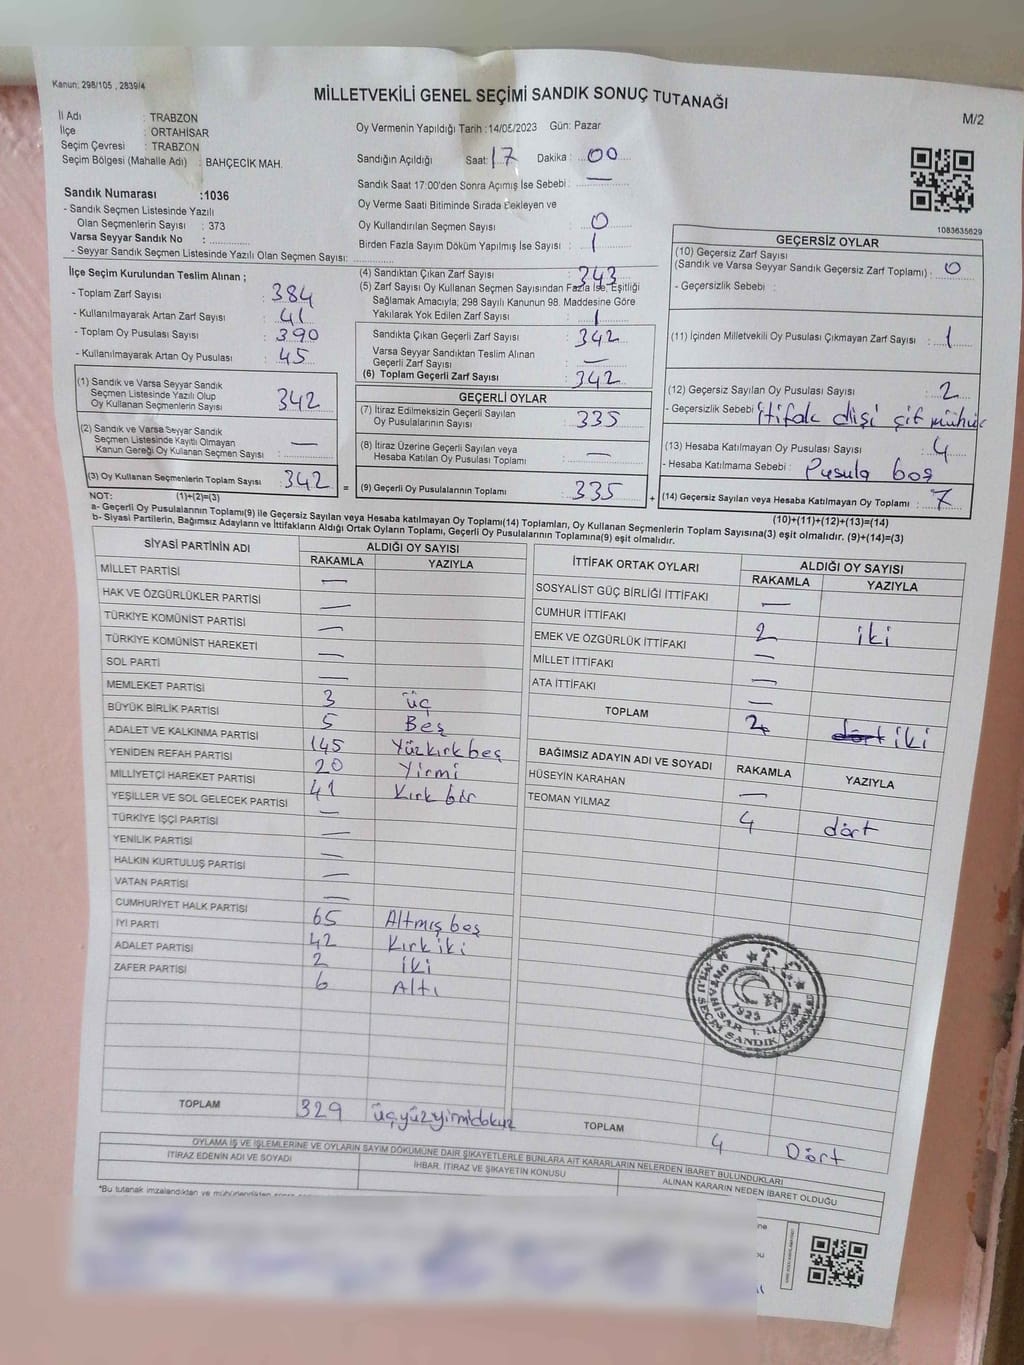 Kanun: 298/105 , 2839/4
MİLLETVEKİLİ GENEL SEÇİMİ SANDIK SONUÇ TUTANAĞI
M/2
İl Adı : TRABZON
İlçe : ORTAHİSAR
Seçim Çevresi : TRABZON
Seçim Bölgesi (Mahalle Adı) : BAHÇECİK MAH.
Sandık Numarası :1036
- Sandık Seçmen Listesinde Yazılı
Olan Seçmenlerin Sayısı : 373
Varsa Seyyar Sandık No :
- Seyyar Sandık Seçmen Listesinde Yazılı Olan Seçmen Sayısı:
Oy Vermenin Yapıldığı Tarih :14/05/2023 Gün: Pazar
Sandığın Açıldığı Saat: 17 Dakika : 00
Sandık Saat 17:00'den Sonra Açımış İse Sebebi : —
Oy Verme Saati Bitiminde Sırada Bekleyen ve
Oy Kullandırılan Seçmen Sayısı : 0
Birden Fazla Sayım Döküm Yapılmış İse Sayısı : 1
1083635629
İlçe Seçim Kurulundan Teslim Alınan ;
- Toplam Zarf Sayısı : 384
- Kullanılmayarak Artan Zarf Sayısı : 41
- Toplam Oy Pusulası Sayısı : 390
- Kullanılmayarak Artan Oy Pusulası : 45
(1) Sandık ve Varsa Seyyar Sandık
Seçmen Listesinde Yazılı Olup
Oy Kullanan Seçmenlerin Sayısı : 342
(2) Sandık ve Varsa Seyyar Sandık
Seçmen Listesinde Kayıtlı Olmayan
Kanun Gereği Oy Kulanan Seçmen Sayısı : —
(3) Oy Kullanan Seçmenlerin Toplam Sayısı : 342 =
(4) Sandıktan Çıkan Zarf Sayısı : 343
(5) Zarf Sayısı Oy Kullanan Seçmen Sayısından Fazla İse, Eşitliği
Sağlamak Amacıyla; 298 Sayılı Kanunun 98. Maddesine Göre
Yakılarak Yok Edilen Zarf Sayısı : 1
Sandıkta Çıkan Geçerli Zarf Sayısı : 342
Varsa Seyyar Sandıktan Teslim Alınan
Geçerli Zarf Sayısı : —
(6) Toplam Geçerli Zarf Sayısı : 342
GEÇERLİ OYLAR
(7) İtiraz Edilmeksizin Geçerli Sayılan
Oy Pusulalarının Sayısı : 335
(8) İtiraz Üzerine Geçerli Sayılan veya
Hesaba Katılan Oy Pusulası Toplamı : —
(9) Geçerli Oy Pusulalarının Toplamı : 335 +
GEÇERSİZ OYLAR
(10) Geçersiz Zarf Sayısı
(Sandık ve Varsa Seyyar Sandık Geçersiz Zarf Toplamı) : 0
- Geçersizlik Sebebi :
(11) İçinden Milletvekili Oy Pusulası Çıkmayan Zarf Sayısı : 1
(12) Geçersiz Sayılan Oy Pusulası Sayısı : 2
- Geçersizlik Sebebi : ittifak dışı çift mühür
(13) Hesaba Katılmayan Oy Pusulası Sayısı : 4
- Hesaba Katılmama Sebebi : Pusula boş
(14) Geçersiz Sayılan veya Hesaba Katılmayan Oy Toplamı : 7
NOT: (1)+(2)=(3)
(10)+(11)+(12)+(13)=(14)
a- Geçerli Oy Pusulalarının Toplamı(9) ile Geçersiz Sayılan veya Hesaba katılmayan Oy Toplamı(14) Toplamları, Oy Kullanan Seçmenlerin Toplam Sayısına(3) eşit olmalıdır. (9)+(14)=(3)
b- Siyasi Partilerin, Bağımsız Adayların ve İttifakların Aldığı Ortak Oyların Toplamı, Geçerli Oy Pusulalarının Toplamına(9) eşit olmalıdır.
SİYASİ PARTİNİN ADI ALDIĞI OY SAYISI
RAKAMLA YAZIYLA
MİLLET PARTİSİ —
HAK VE ÖZGÜRLÜKLER PARTİSİ —
TÜRKİYE KOMÜNİST PARTİSİ —
TÜRKİYE KOMÜNİST HAREKETİ —
SOL PARTİ —
MEMLEKET PARTİSİ 3 üç
BÜYÜK BİRLİK PARTİSİ 5 Beş
ADALET VE KALKINMA PARTİSİ 145 Yüzkırkbeş
YENİDEN REFAH PARTİSİ 20 Yirmi
MİLLİYETÇİ HAREKET PARTİSİ 41 Kırk bir
YEŞİLLER VE SOL GELECEK PARTİSİ —
TÜRKİYE İŞÇİ PARTİSİ —
YENİLİK PARTİSİ —
HALKIN KURTULUŞ PARTİSİ —
VATAN PARTİSİ —
CUMHURİYET HALK PARTİSİ 65 Altmış beş
İYİ PARTİ 42 Kırk iki
ADALET PARTİSİ 2 iki
ZAFER PARTİSİ 6 Altı
TOPLAM 329 üçyüzyirmidokuz
İTTİFAK ORTAK OYLARI ALDIĞI OY SAYISI
RAKAMLA YAZIYLA
SOSYALİST GÜÇ BİRLİĞİ İTTİFAKI —
CUMHUR İTTİFAKI 2 iki
EMEK VE ÖZGÜRLÜK İTTİFAKI —
MİLLET İTTİFAKI —
ATA İTTİFAKI —
TOPLAM 2 dört iki
BAĞIMSIZ ADAYIN ADI VE SOYADI RAKAMLA YAZIYLA
HÜSEYİN KARAHAN —
TEOMAN YILMAZ 4 dört
1923
TOPLAM 4 Dört
OYLAMA İŞ VE İŞLEMLERİNE VE OYLARIN SAYIM DÖKÜMÜNE DAİR ŞİKAYETLERLE BUNLARA AİT KARARLARIN NELERDEN İBARET BULUNDUKLARI
İTİRAZ EDENİN ADI VE SOYADI İHBAR, İTİRAZ VE ŞİKAYETİN KONUSU ALINAN KARARIN NEDEN İBARET OLDUĞU
*Bu tutanak imzalandıktan ve mühürlendikten sonra